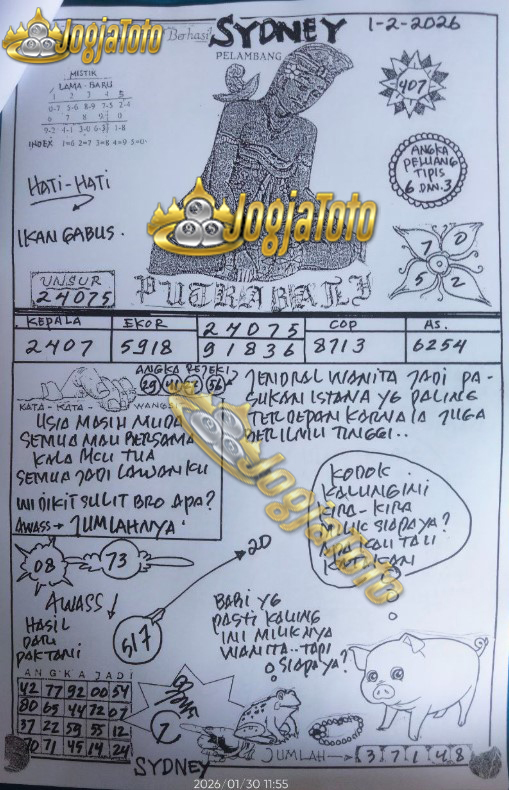 JogjaToto
Berhasil SYDNEY 1-2-2026
PELAMBANG
MISTIK
LAMA - BARU
1 2 3 4 5
6 7 8 9 0
INDEX 1=6 2=7 3=8 4=9 5=0
407
ANGKA
PELUANG
TIPIS
6 DAN 3
HATI-HATI
IKAN GABUS.
JogjaToto
7 0
5 2
UNSUR
24075
PUTRA BALI
KEPALA EKOR 24075 COP AS.
2407 5918 91836 8713 6254
ANGKA REJEKI
29 56
KATA-KATA WANGSIT
USIA MASIH MUDA
SEMUA MAU BERSAMA
KALA MCU TUA
SEMUA JADI LAWANKU
INI DIKIT SULIT BRO APA?
AWASS → JUMLAHNYA
JENDRAL WANITA JADI PA-
SUKAN ISTANA YG PALING
TERDEPAN KARNA IA JUGA
BERILMU TINGGI..
JogjaToto
KODOK
KALUNG INI
KIRA-KIRA
MILIK SIAPA YA?
08
73
20
AWASS!
HASIL
DARI
PAKTANI
517
BABI YG
PASTI KALUNG
INI MILIKNYA
WANITA..TAPI
SIAPA YA?
ANGKA JADI
42 77 92 00 54
80 65 44 72 07
37 22 59 55 12
70 71 45 19 24
7
SYDNEY
JUMLAH → 3 7 1 4 8
2026/01/30 11:55